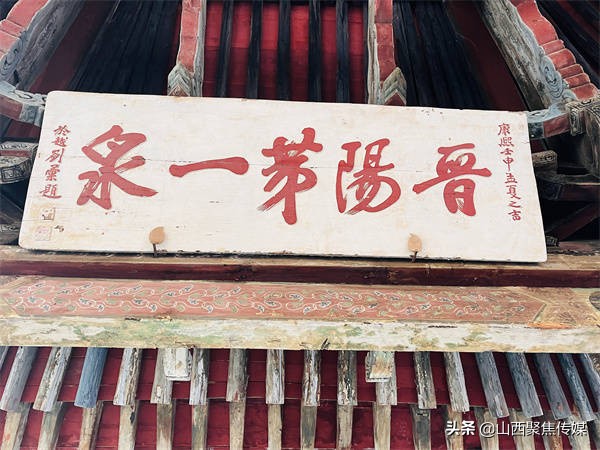 康熙壬申孟夏之吉
晋陽苐一泉
於越劉題
头条 @山西聚焦传媒